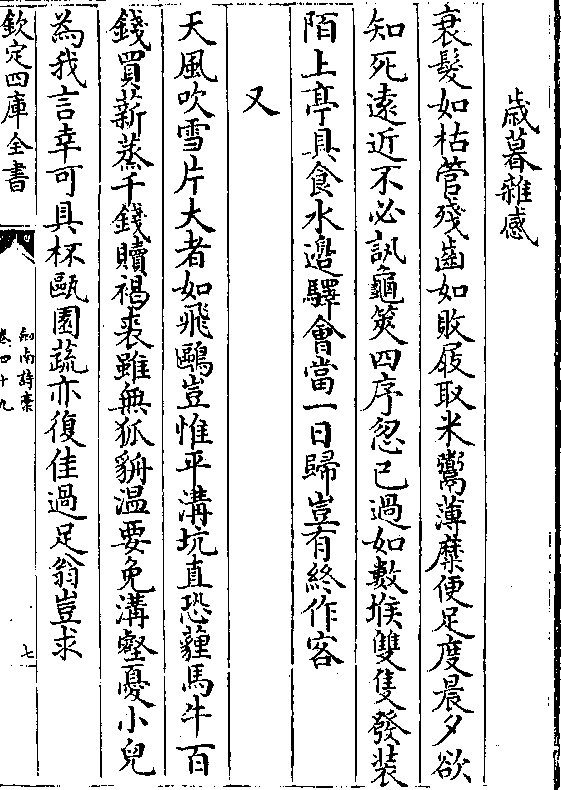 歲暮雜感
衰髮如枯菅殘齒如敗屐取米鬻薄糜便足度晨夕欲
知死遠近不必訊龜筴四序忽已過如數堠雙隻發装
陌上亭具食水邉驛會當一日歸豈有終作客
又
天風吹雪片大者如飛鷗豈惟平溝坑直恐䨪馬牛百
錢買薪蒸千錢贖褐裘雖無狐貈温要免溝壑憂小兒
為我言幸可具杯甌園蔬亦復佳過足翁豈求
欽定四庫全書
劍南詩稾
卷四十九
七